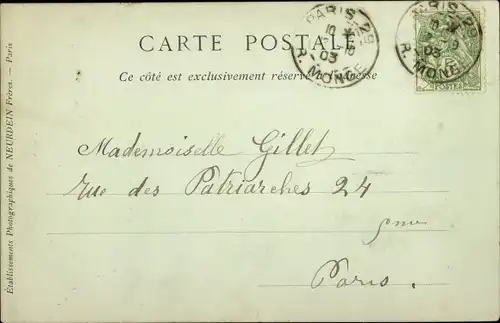 CARTE POSTALE
Ce côté est exclusivement réservé à l'adresse
PARIS 29
R. MONGE
03
PARIS 29
R. MONGE
03
POSTES
Mademoiselle Gillet
rue des Patriarches 24
5me
Paris.
Établissements Photographiques de NEURDEIN Frères. — Paris